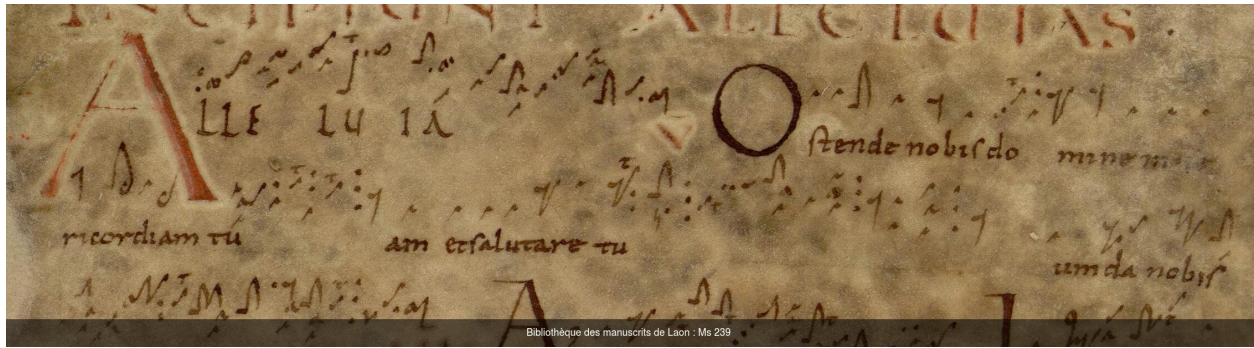 INCIPIUNT ALLELUIAS.
ALLE LU IA V Ostende nobis do mine mise
ricordiam tu am et salutare tu
um da nobis
Bibliothèque des manuscrits de Laon : Ms 239